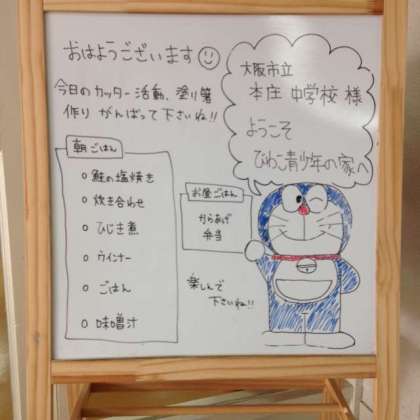 おはようございます
今日のカッター活動、塗り箸
作り がんばって下さいね!!
大阪市立
本庄 中学校 様
ようこそ
びわこ青少年の家へ
朝ごはん
○ 鮭の塩焼き
○ 炊き合わせ
○ ひじき煮
○ ウインナー
○ ごはん
○ 味噌汁
お昼ごはん
からあげ
弁当
楽しんで
下さいね!!